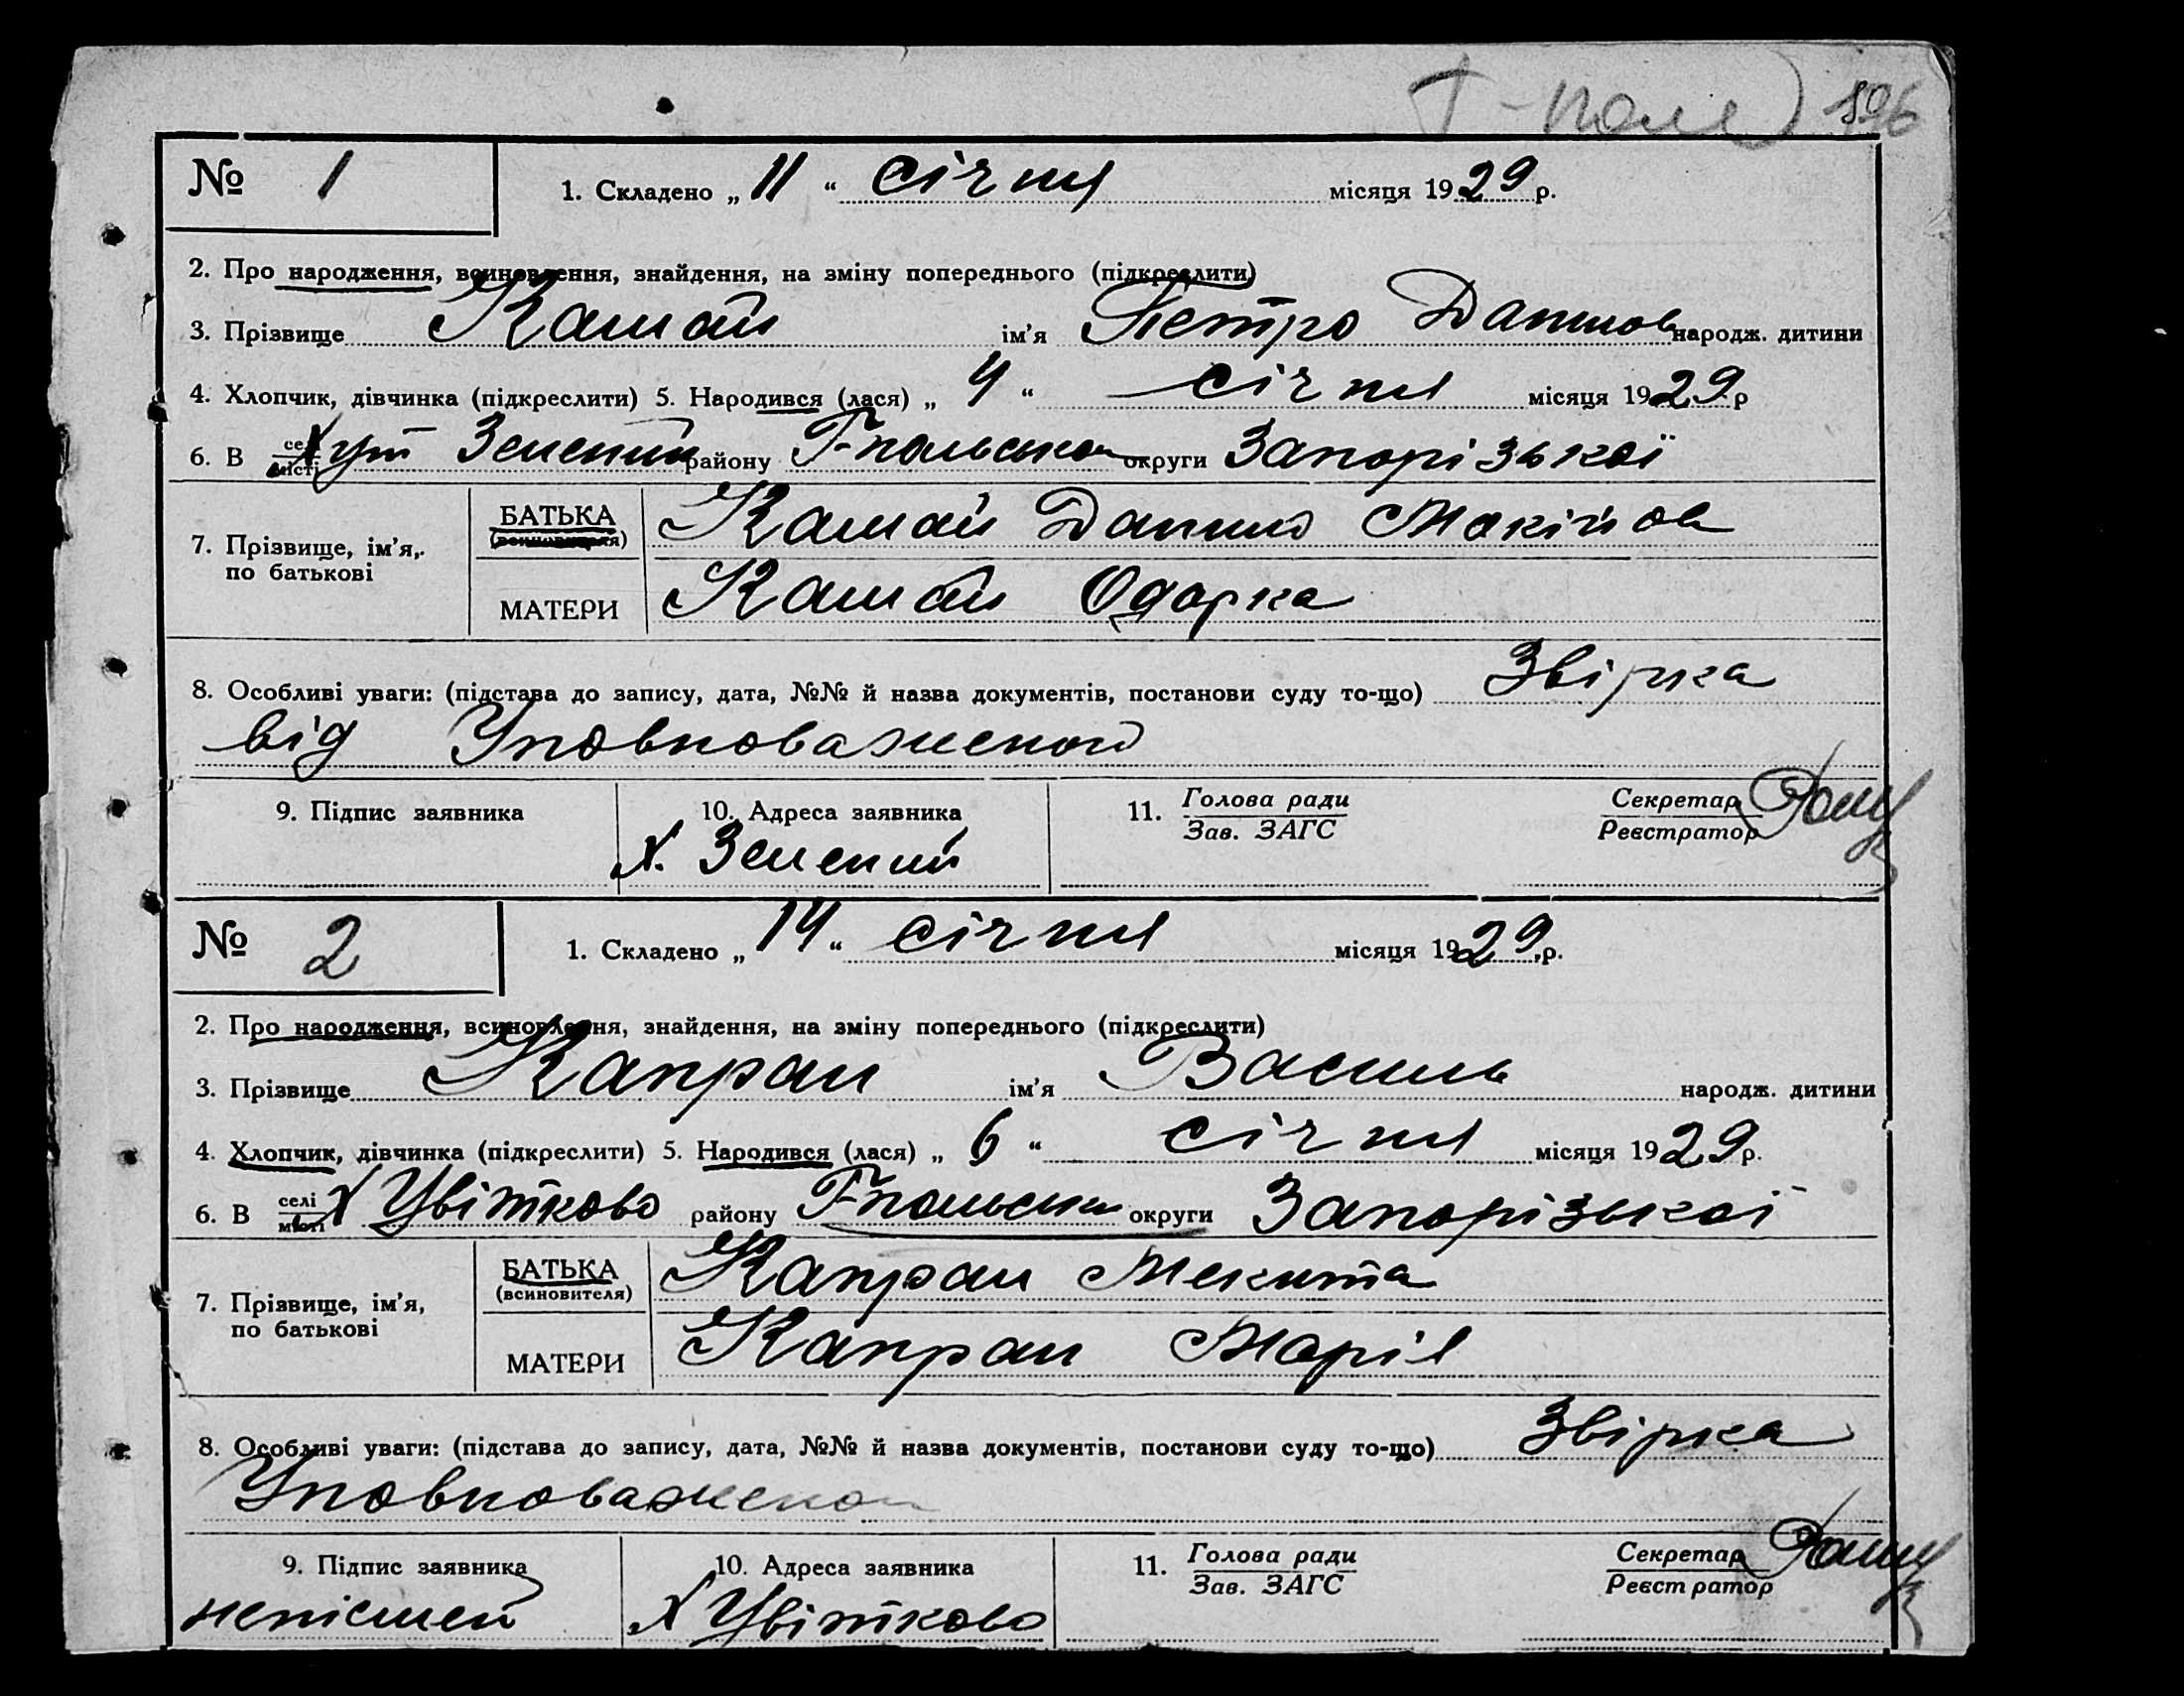 Г-поле) 196
№ 1
1. Складено „ 11 “ січня місяця 1929 р.
2. Про народження, всиновлення, знайдення, на зміну попереднього (підкреслити)
3. Прізвище Камай ім’я Петро Данилов народж. дитини
4. Хлопчик, дівчинка (підкреслити) 5. Народився (лася) „ 4 “ січня місяця 1929 р
6. В селі місті Хут Зелений району Г-польськ округи Запорізької
7. Прізвище, ім’я, по батькові
БАТЬКА (всиновителя) Камай Данило Мокійов
МАТЕРИ Камай Одарка
8. Особливі уваги: (підстава до запису, дата, №№ й назва документів, постанови суду то-що) Звірка
від Уповноваженого
9. Підпис заявника 10. Адреса заявника 11. Голова ради Зав. ЗАГС Секретар Реєстратор
х. Зелений
№ 2
1. Складено „ 14 “ січня місяця 1929 р.
2. Про народження, всиновлення, знайдення, на зміну попереднього (підкреслити)
3. Прізвище Капран ім’я Василь народж. дитини
4. Хлопчик, дівчинка (підкреслити) 5. Народився (лася) „ 6 “ січня місяця 1929 р.
6. В селі місті х Цвітково району Г-польськ округи Запорізької
7. Прізвище, ім’я, по батькові
БАТЬКА (всиновителя) Капран Мекита
МАТЕРИ Капран Марія
8. Особливі уваги: (підстава до запису, дата, №№ й назва документів, постанови суду то-що) Звірка
Уповноваженого
9. Підпис заявника 10. Адреса заявника 11. Голова ради Зав. ЗАГС Секретар Реєстратор
непісмен х Цвітково